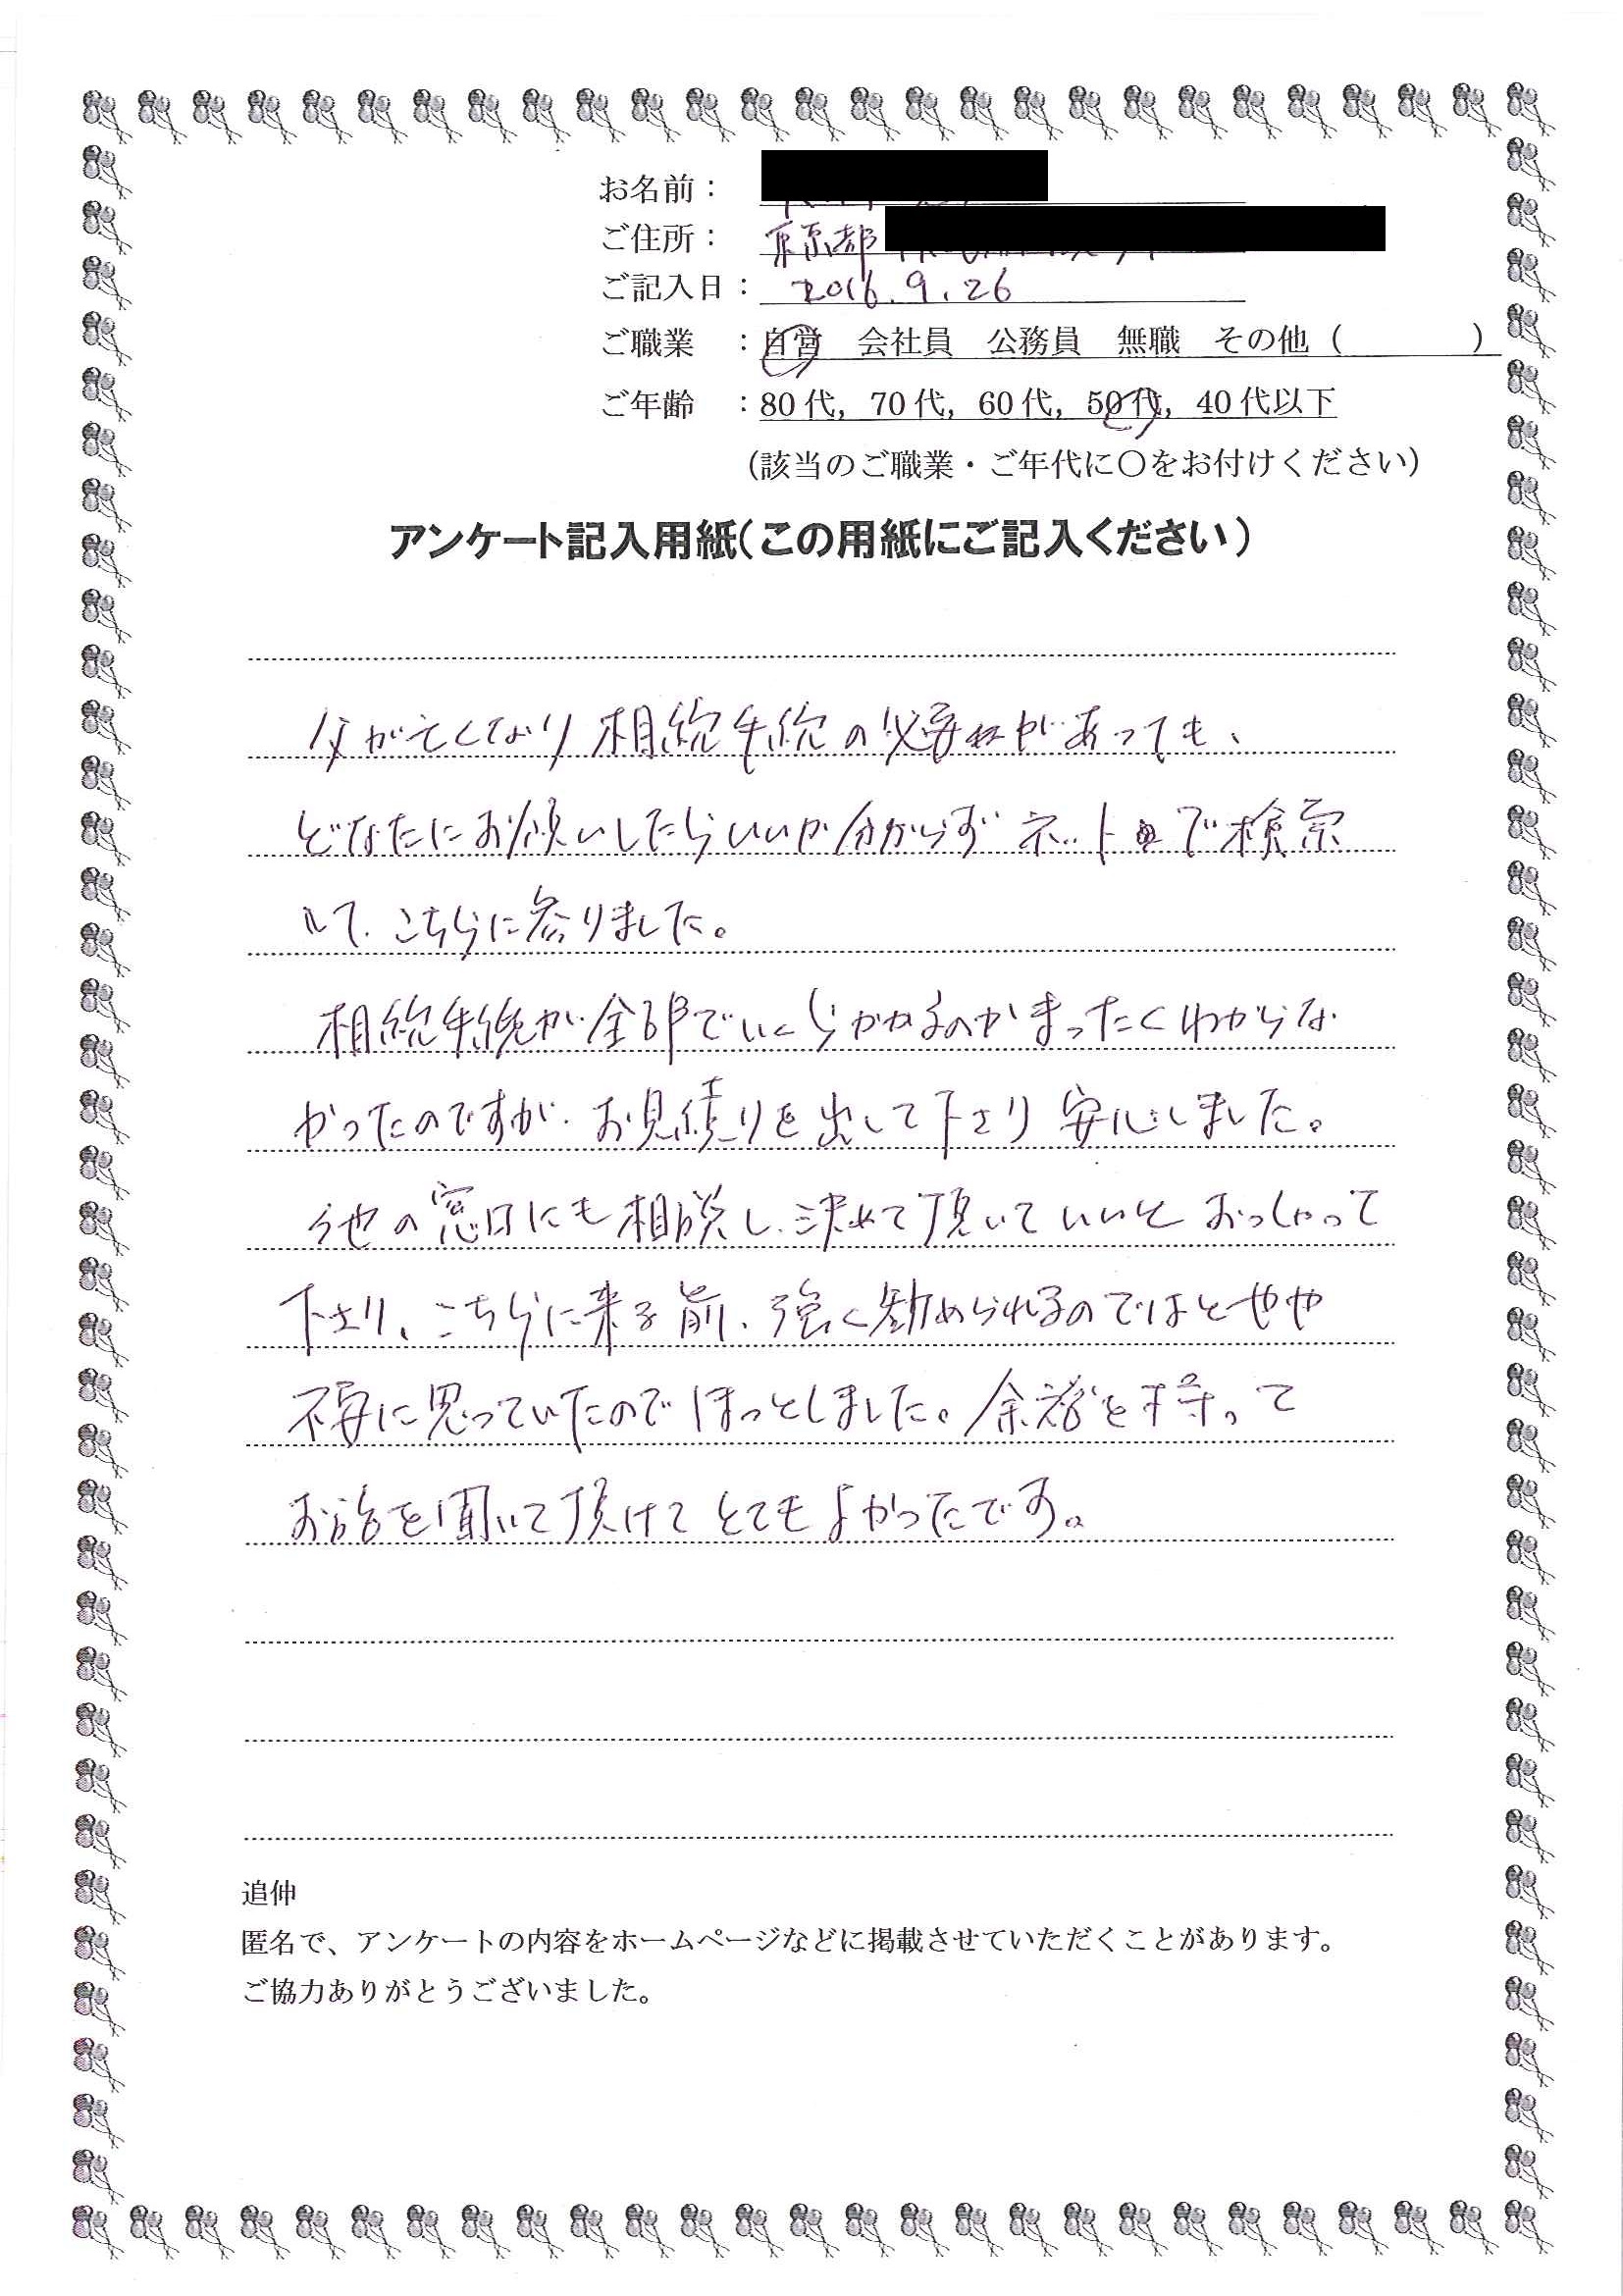 お名前：
ご住所： 東京都
ご記入日： 2016.9.26
ご職業 ：自営 会社員 公務員 無職 その他（ ）
ご年齢 ：80代，70代，60代，50代，40代以下
（該当のご職業・ご年代に〇をお付けください）
アンケート記入用紙（この用紙にご記入ください）
父が亡くなり相続手続の必要があっても、
どなたにお願いしたらいいか分からずネットで検索
して、こちらに参りました。
相続手続が全部でいくらかかるのかまったくわからな
かったのですが、お見積りを出して下さり安心しました。
他の窓口にも相談し、決めて頂いていいとおっしゃって
下さり、こちらに来る前、強く勧められるのではとやや
不安に思っていたのでほっとしました。余裕を持って
お話を聞いて頂けてとてもよかったです。
追伸
匿名で、アンケートの内容をホームページなどに掲載させていただくことがあります。
ご協力ありがとうございました。